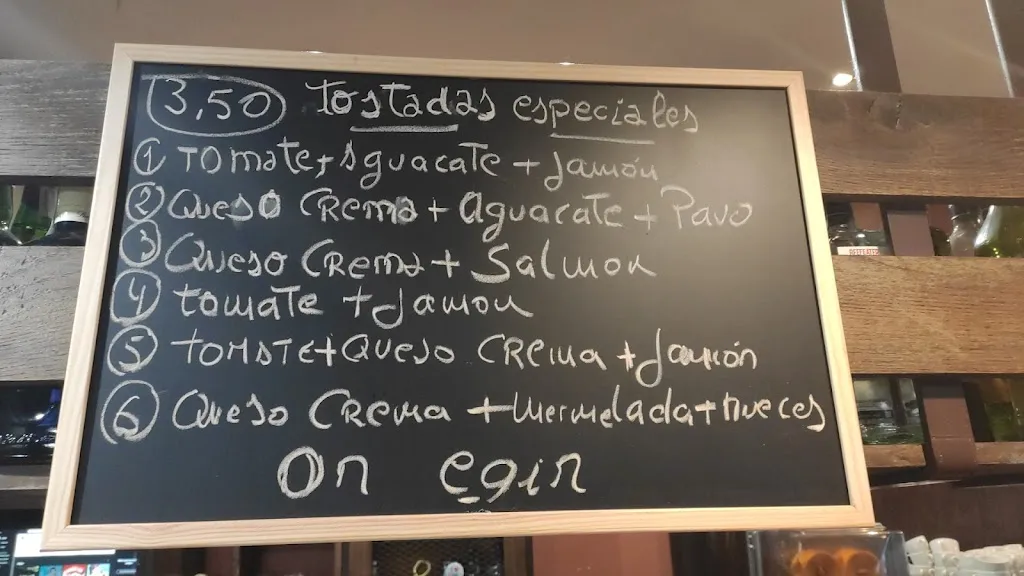 3,50 tostadas especiales
1 Tomate + Aguacate + Jamón
2 Queso Crema + Aguacate + Pavo
3 Queso Crema + Salmon
4 tomate + Jamon
5 tomate + Queso Crema + Jamón
6 Queso Crema + Mermelada + nueces
On egin